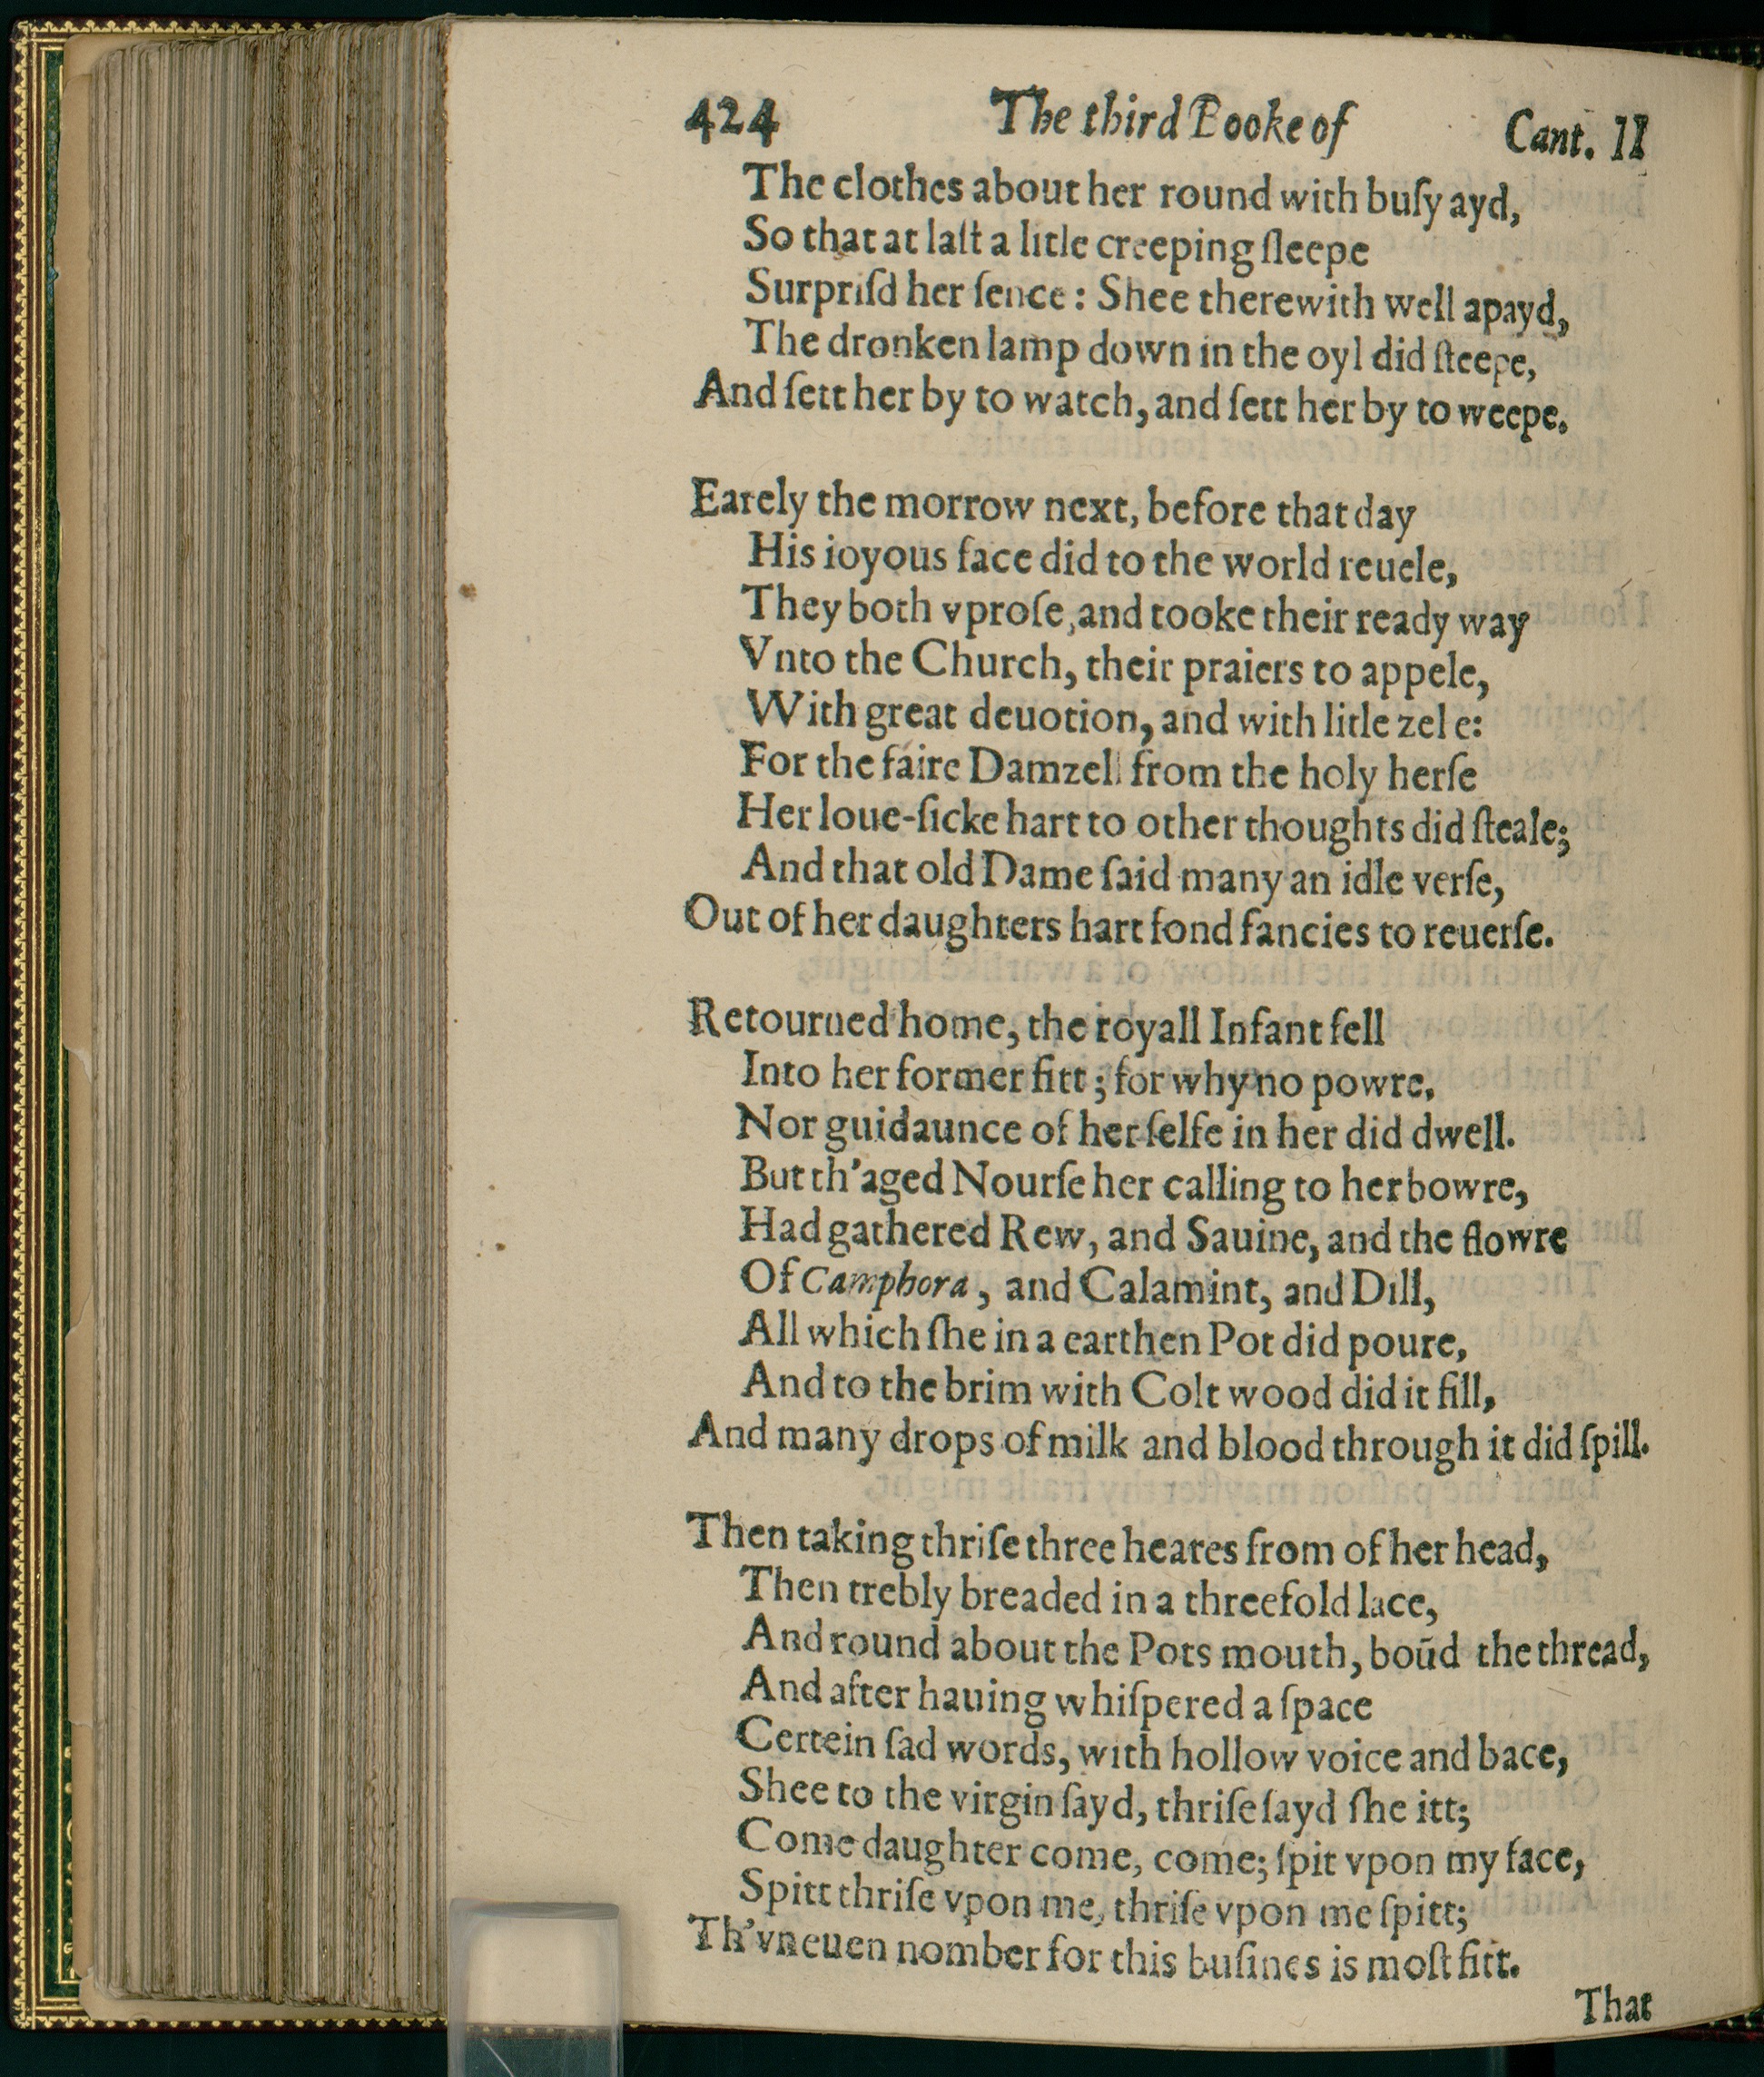 424 The third Booke of Cant. II
The clothes about her round with buſy ayd,
So that at laſt a litle creeping ſleepe
Surpriſd her ſence: Shee therewith well apayd,
The dronken lamp down in the oyl did ſteepe,
And ſett her by to watch, and ſett her by to weepe.
Earely the morrow next, before that day
His ioyous face did to the world reuele,
They both vproſe, and tooke their ready way
Vnto the Church, their praiers to appele,
With great deuotion, and with litle zele:
For the faire Damzell from the holy herſe
Her loue-ſicke hart to other thoughts did ſteale;
And that old Dame ſaid many an idle verſe,
Out of her daughters hart fond fancies to reuerſe.
Retourned home, the royall Infant fell
Into her former fitt; for why no powre,
Nor guidaunce of her ſelfe in her did dwell.
But th'aged Nourſe her calling to her bowre,
Had gathered Rew, and Sauine, and the flowre
Of Camphora, and Calamint, and Dill,
All which ſhe in a earthen Pot did poure,
And to the brim with Colt wood did it fill,
And many drops of milk and blood through it did ſpill.
Then taking thriſe three heares from of her head,
Then trebly breaded in a threefold lace,
And round about the Pots mouth, boūd the thread,
And after hauing whiſpered a ſpace
Certein ſad words, with hollow voice and bace,
Shee to the virgin ſayd, thriſe ſayd ſhe itt;
Come daughter come, come; ſpit vpon my face,
Spitt thriſe vpon me, thriſe vpon me ſpitt;
Th'vneuen nomber for this buſines is moſt fitt.
That